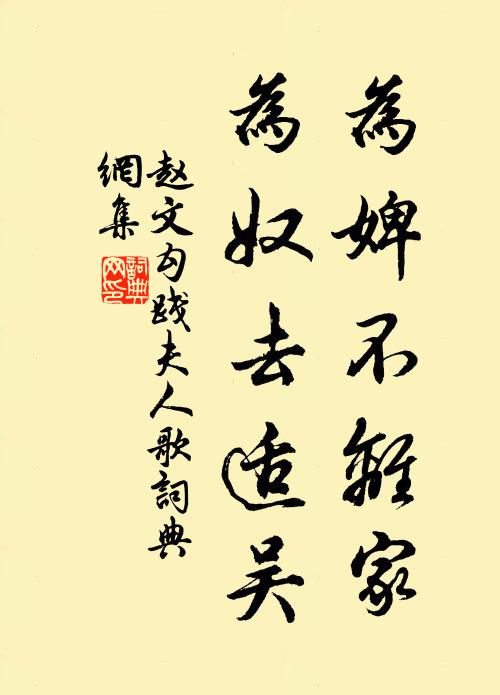 為婢不離家
為奴去适吴
赵文勾践夫人歌詞典
網集
詞典
网印